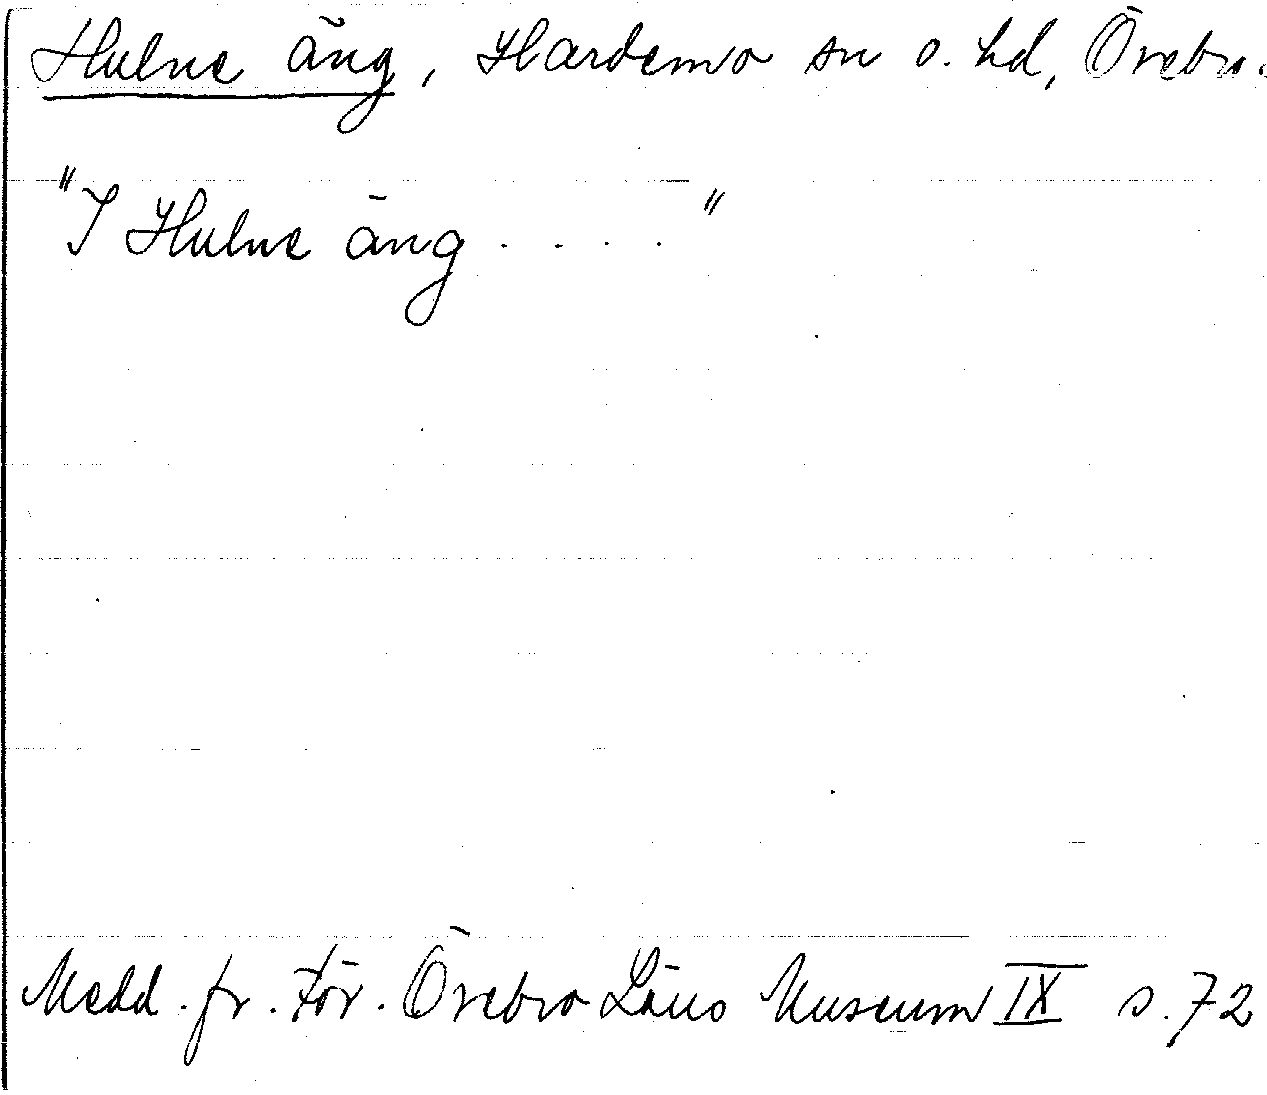 Hulne äng, Hardemo sn o. hd, Örebro.
"I Hulne äng . . . . "
Medd. fr. För. Örebro Läns Museum IX s. 72